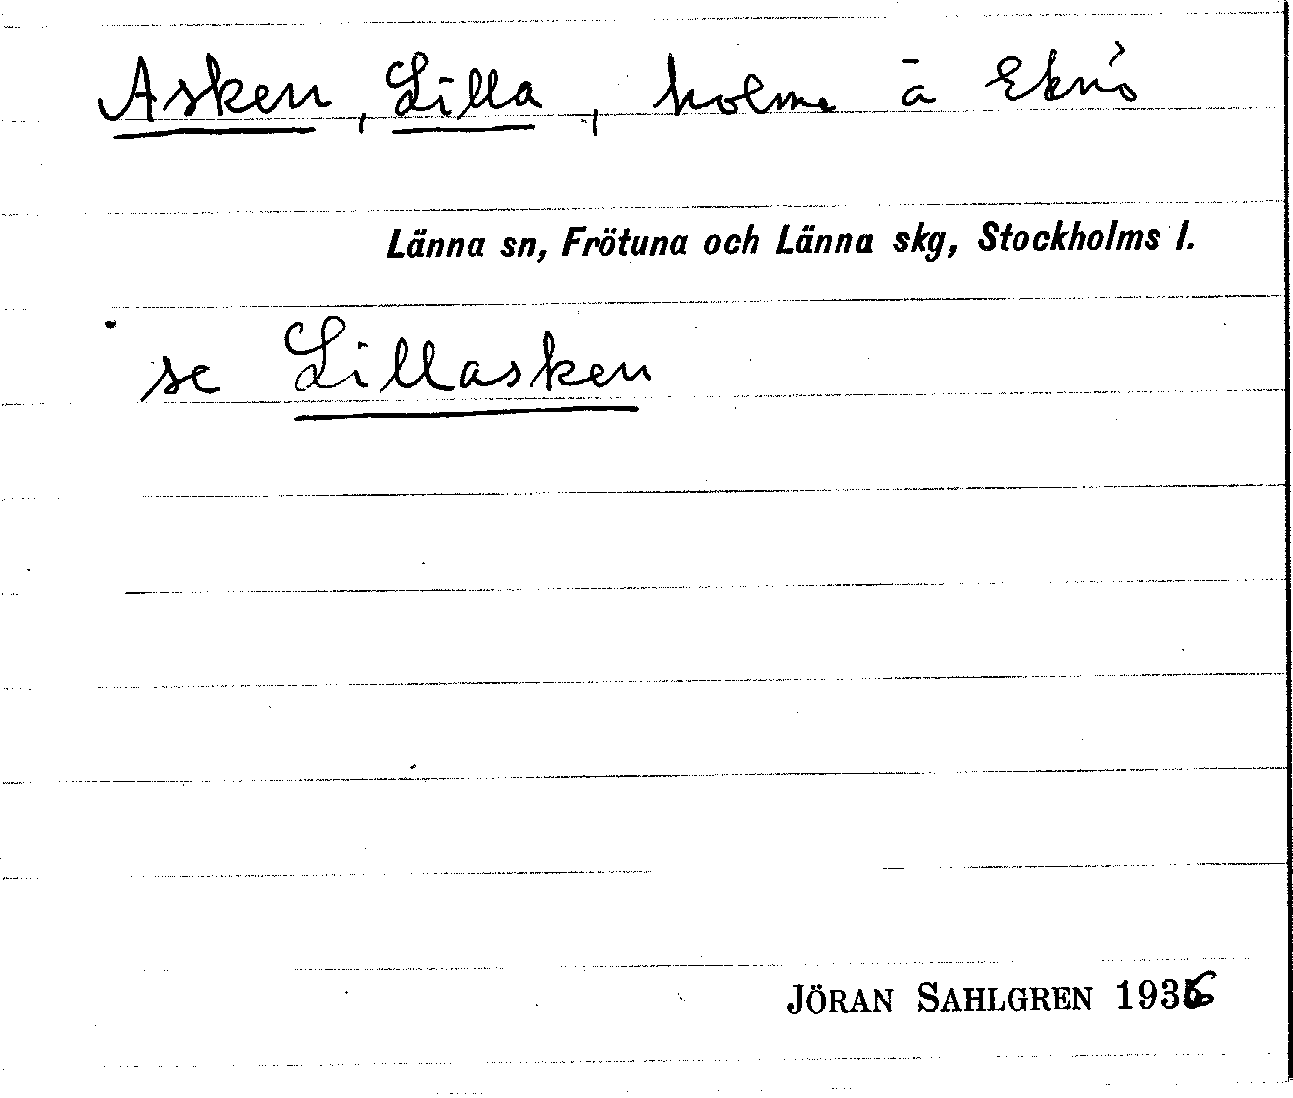 Asken, Lilla, holme å Eknö
Länna sn, Frötuna och Länna skg, Stockholms l.
se Lillasken
JÖRAN SAHLGREN 1936